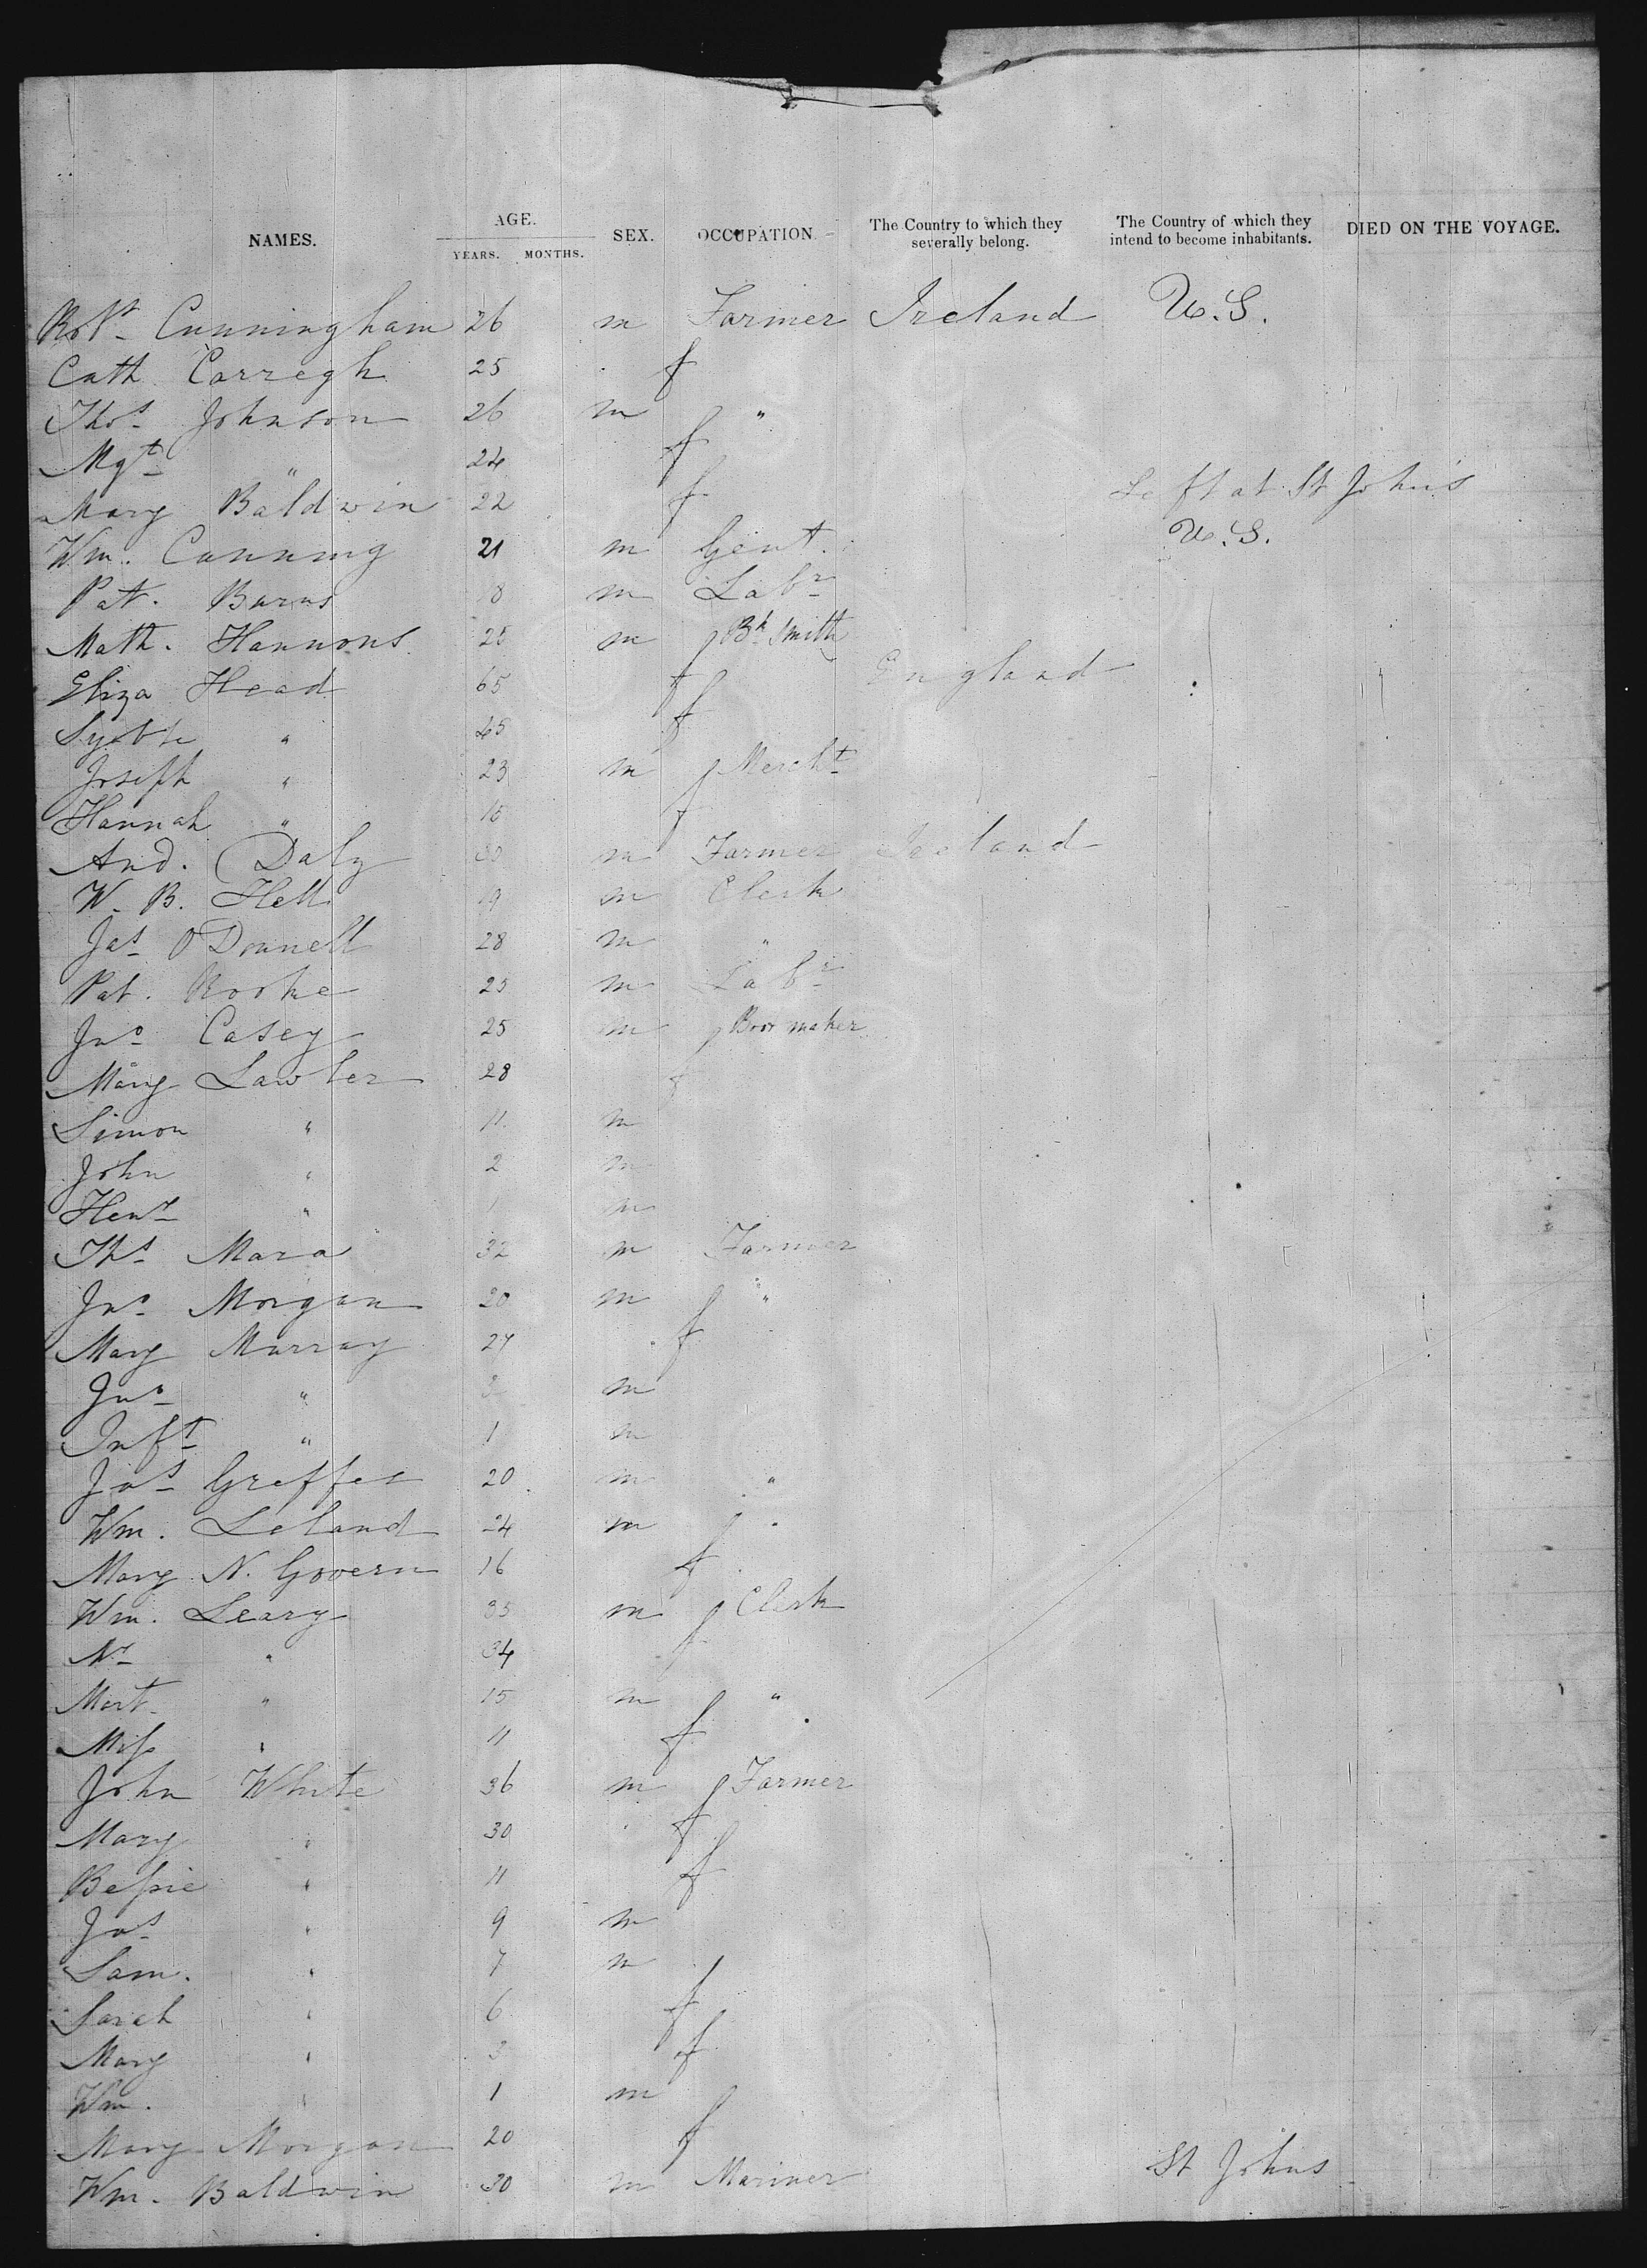 NAMES. AGE. SEX. OCCUPATION The Country to which they severally belong. The Country of which they intend to become inhabitants. DIED ON THE VOYAGE.
YEARS. MONTHS.
Robt. Cunningham 26 m Farmer Ireland U.S.
Cath Carregh 25 f
Thos Johnson 26 m "
Mgt " 24 f
Mary Baldwin 22 f Left at St John's
Wm. Canning 21 m Gent. U.S.
Pat. Burns 18 m Labr
Math. Hannons 25 m Bk Smith
Eliza Head 65 f England
" 45 f
Joseph " 23 m Mercht
Hannah " 16 f
And. Daly 30 m Farmer Ireland
W. B. Hett 19 m Clerk
Jas O'Donnell 28 m "
Pat. Rooke 25 m Labr
Jno Casey 25 m Boot maker
Mary Lawler 28 f
Simon " 11 m
John " 2 m
Heny " 1 m
Ths Mara 32 m Farmer
Jno Morgan 20 m "
Mary Murray 27 f
Jno " 3 m
Inft " 1 m
Jas Greffer 20 m "
Wm. Leland 24 m "
Mary N. Govern 16 f
Wm. Leary 35 m Clerk
" 34 f
Mart. " 15 m "
Miss " 11 f
John White 36 m Farmer
Mary " 30 f
Bessie " 11 f
Jas " 9 m
Sam. " 7 m
Sarah " 6 f
Mary " 3 f
Wm. " 1 m
Mary Morgan 20 f
Wm. Baldwin 30 m Mariner St Johns